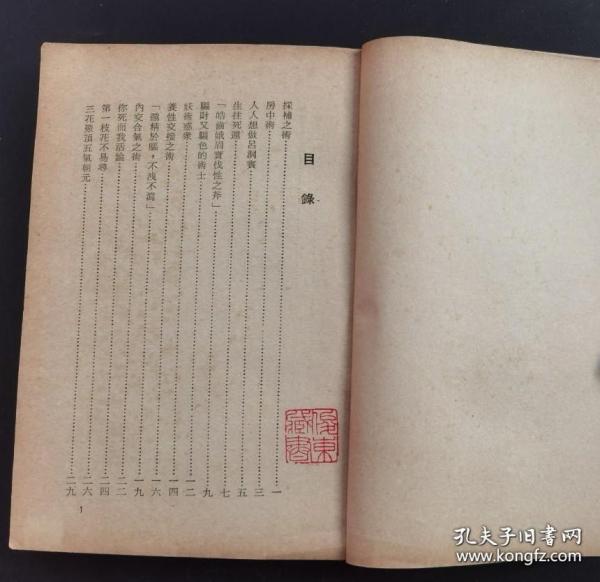 目錄
採補之術……一
房中術……三
人人想做呂洞賓……五
生往死還……七
「皓齒娥眉實伐性之斧」……九
騙財又騙色的術士……一二
妖術惑衆……一四
養性交接之術……一六
「還精於腦，不洩不瀉」……一九
內交合氣之術……二二
你死而我活論……二四
第一枝花不易尋……二六
三花聚頂五氣朝元……二九
1
孔夫子旧书网
www.kongfz.com